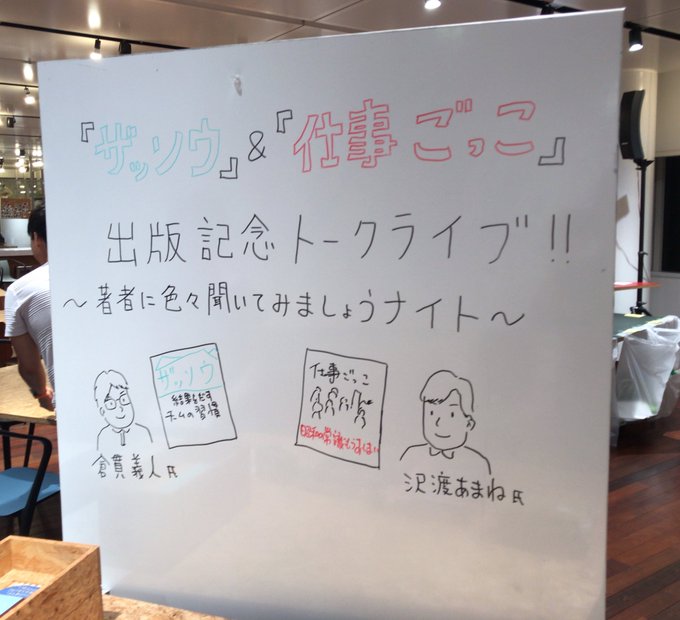 『ザッソウ』&『仕事ごっこ』
出版記念トークライブ!!
～著者に色々聞いてみましょうナイト～
ザッソウ
結果を出す
チームの習慣
倉貫義人氏
仕事ごっこ
沢渡あまね氏